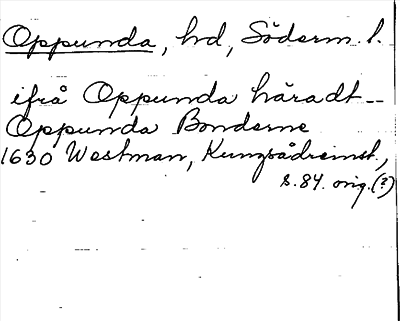 Oppunda, hd, Söderm. l.
ifrå Oppunda häradt --
Oppunda Bonderne
1630 Westman, Kungsådreinst.,
s. 84. orig. (?)